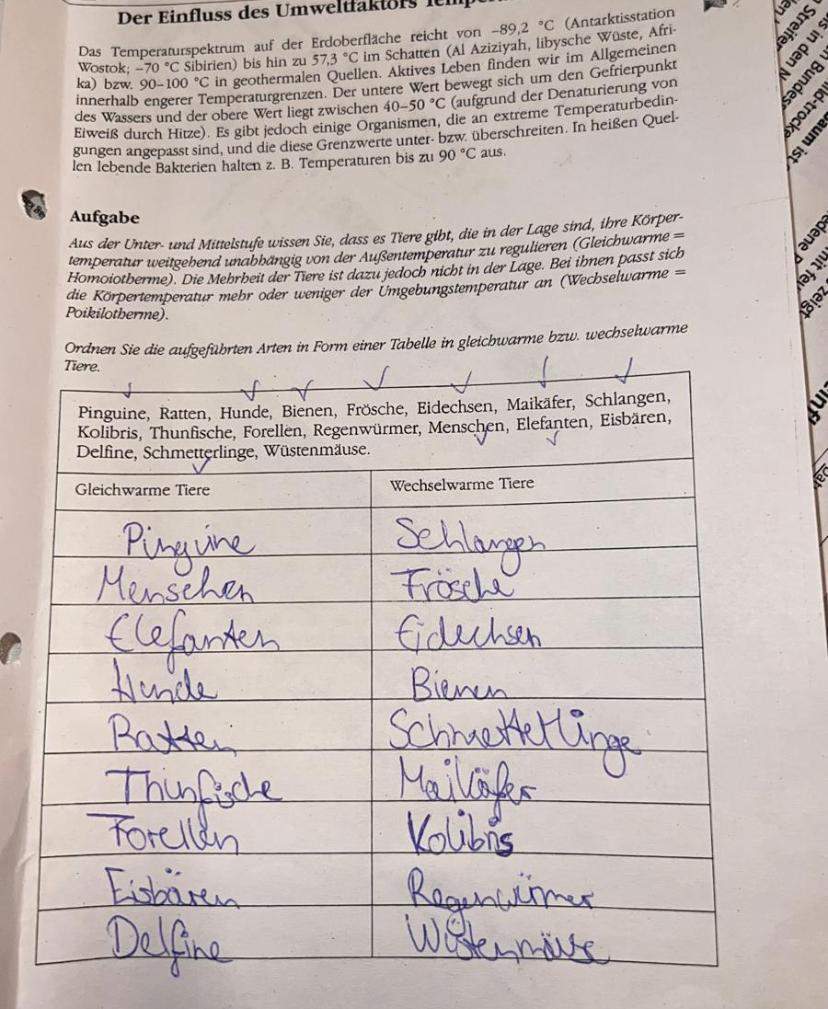 Der Einfluss des Umweltfaktors
Das Temperaturspektrum auf der Erdoberfläche reicht von –89,2 °C (Antarktisstation
Wostok; –70 °C Sibirien) bis hin zu 57,3 °C im Schatten (Al Aziziyah, libysche Wüste, Afri-
ka) bzw. 90–100 °C in geothermalen Quellen. Aktives Leben finden wir im Allgemeinen
innerhalb engerer Temperaturgrenzen. Der untere Wert bewegt sich um den Gefrierpunkt
des Wassers und der obere Wert liegt zwischen 40–50 °C (aufgrund der Denaturierung von
Eiweiß durch Hitze). Es gibt jedoch einige Organismen, die an extreme Temperaturbedin-
gungen angepasst sind, und die diese Grenzwerte unter- bzw. überschreiten. In heißen Quel-
len lebende Bakterien halten z. B. Temperaturen bis zu 90 °C aus.
Aufgabe
Aus der Unter- und Mittelstufe wissen Sie, dass es Tiere gibt, die in der Lage sind, ihre Körper-
temperatur weitgehend unabhängig von der Außentemperatur zu regulieren (Gleichwarme =
Homoiotherme). Die Mehrheit der Tiere ist dazu jedoch nicht in der Lage. Bei ihnen passt sich
die Körpertemperatur mehr oder weniger der Umgebungstemperatur an (Wechselwarme =
Poikilotherme).
Ordnen Sie die aufgeführten Arten in Form einer Tabelle in gleichwarme bzw. wechselwarme
Tiere.
Pinguine, Ratten, Hunde, Bienen, Frösche, Eidechsen, Maikäfer, Schlangen,
Kolibris, Thunfische, Forellen, Regenwürmer, Menschen, Elefanten, Eisbären,
Delfine, Schmetterlinge, Wüstenmäuse.
Gleichwarme Tiere Wechselwarme Tiere
Pinguine Schlangen
Menschen Frösche
Elefanten Eidechsen
Hunde Bienen
Ratten Schmetterlinge
Thunfische Maikäfer
Forellen Kolibris
Eisbären Regenwürmer
Delfine Wüstenmäuse